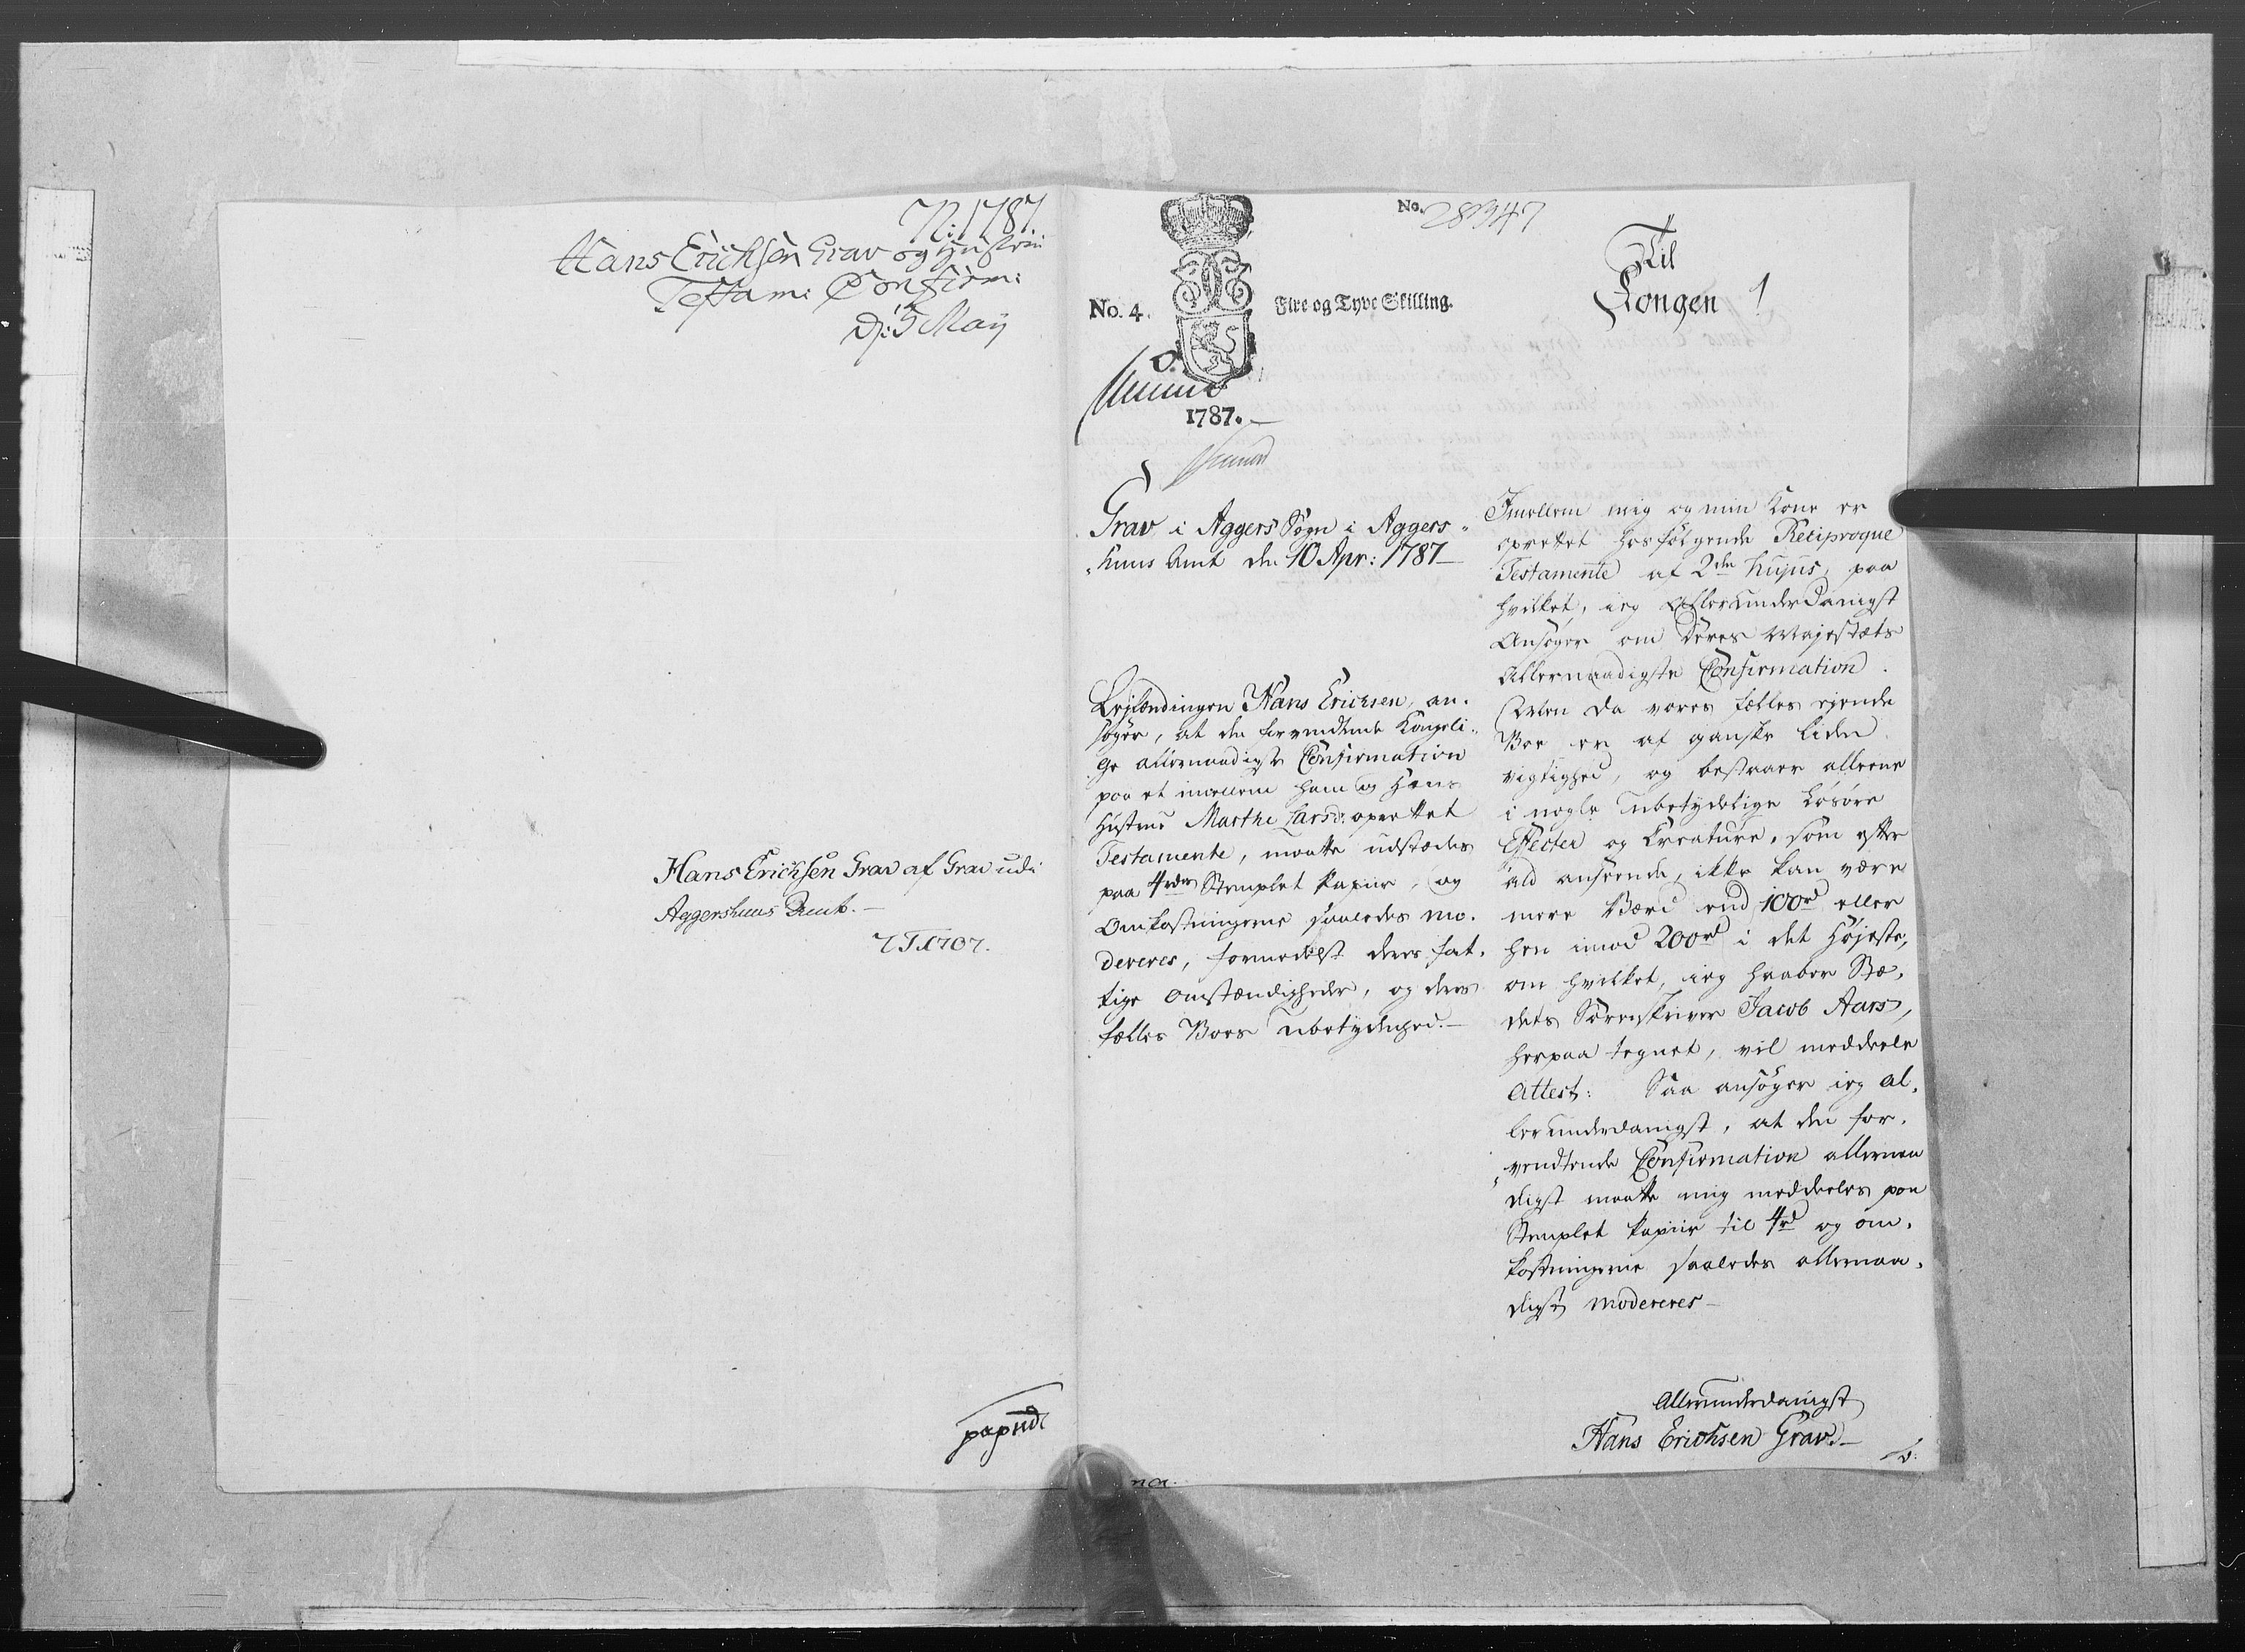 N: 1787
Hans Erichsen Grav og Hustrue
Testam: Confirm:
D: 5 Maij
Hans Erichsen Grav af Grav udi
Aggershuus Amt.—
papiir
No. 28347
Til
Kongen!
No. 4.
Fire og Tyve Skilling.
1787.
Grav i Aggers Sogn i Aggers
huus Amt den 10 Apr: 1787—
Lejlændingen Hans Erichsen, an
søger, at den forventende Kongeli
ge allernaadigste Confirmation
paa et imellem ham og Hans
Hustrue Marthe Larsd: oprettet
Testamente, maatte udstædes
paa 4rdrs Stemplet Papiir, og
Omkostningerne saaledes mo
dereres, formedelst deres fat
tige Omstændigheder, og deres
fælles Boes Ubetydenhed.—
Imellem mig og min Kone er
oprettet hosfølgende Reciproque
Testamente af 2den hujus, paa
hvilket, jeg Allerunderdanigst
Ansøger om Deres Majestæts
Allernaadigste Confirmation.
Men da vores fælles ejende
Boe er af ganske liden
vigtighed, og bestaaer alleene
i nogle Ubetydelige Løsøre
Effecter og Creature, som efter
ald anseende, ikke kan være
mere Værd end 100rd eller
hen imod 200rd i det Højeste,
om hvilket, jeg haaber Stæ
dets Sørenskriver Jacob Aars,
herpaa tegnet, vil meddeele
Attest: Saa ansøger jeg al
lerunderdanigst, at den for
ventende Confirmation allernaa
digst maatte mig meddeeles paa
Stemplet Papiir til 4rd og om
kostningerne saaledes allernaa
digst modereres—
Allerunderdanigst
Hans Erichsen Grav.—